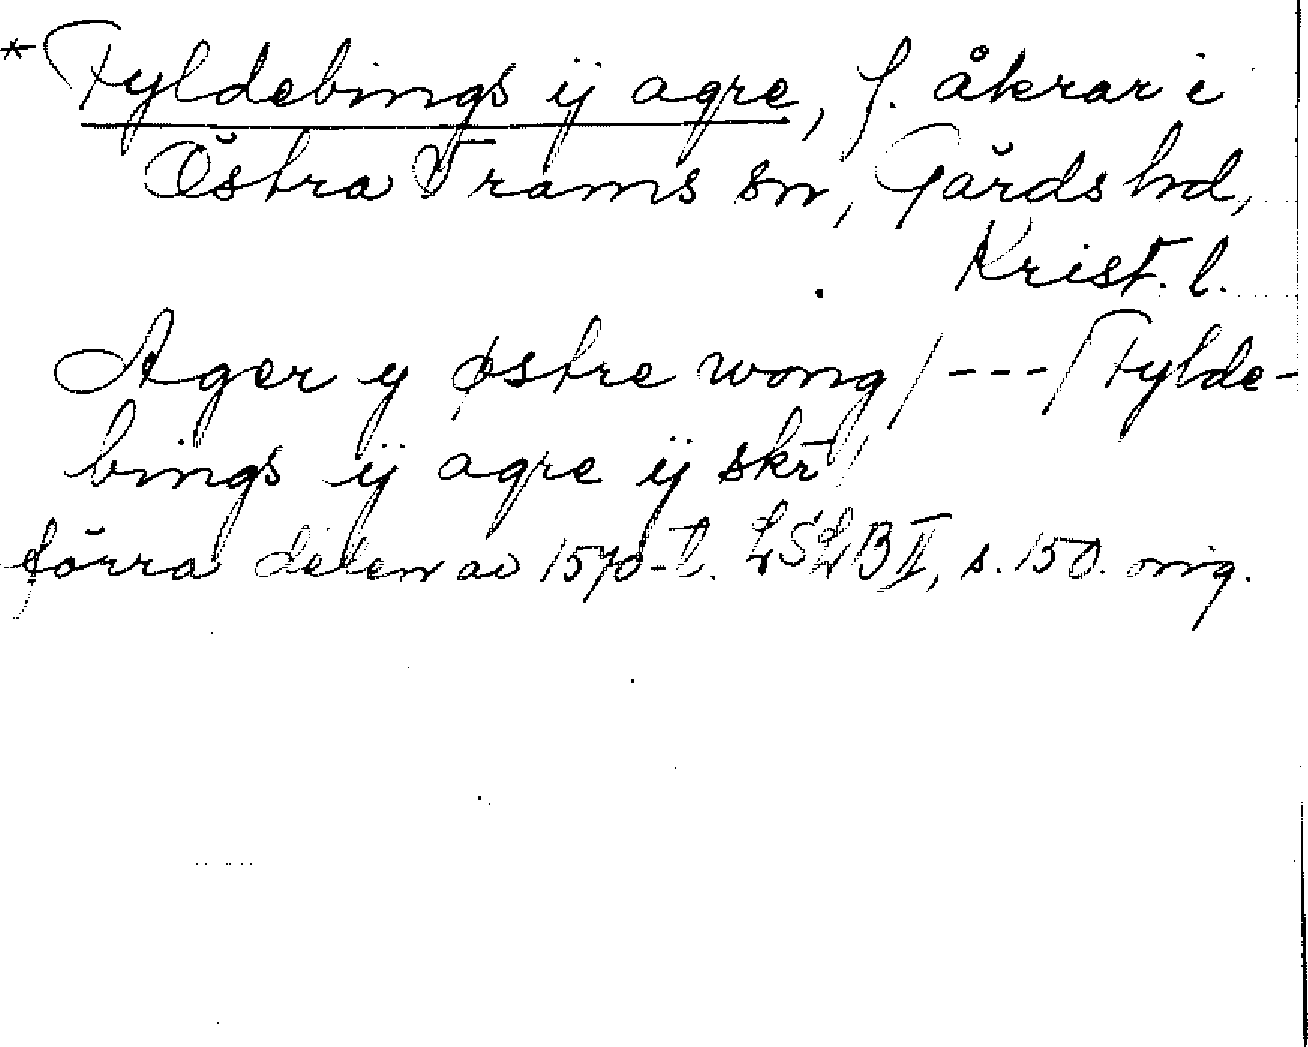 *Fyldebings ij agre, f. åkrar i
Östra Vrams sn, Gärds hd,
Krist. l.
Ager y østre wong /---/ Fylde-
bings ij agre ij skr̄ /
förra delen av 1570-t. LSLB II, s. 150. mg.